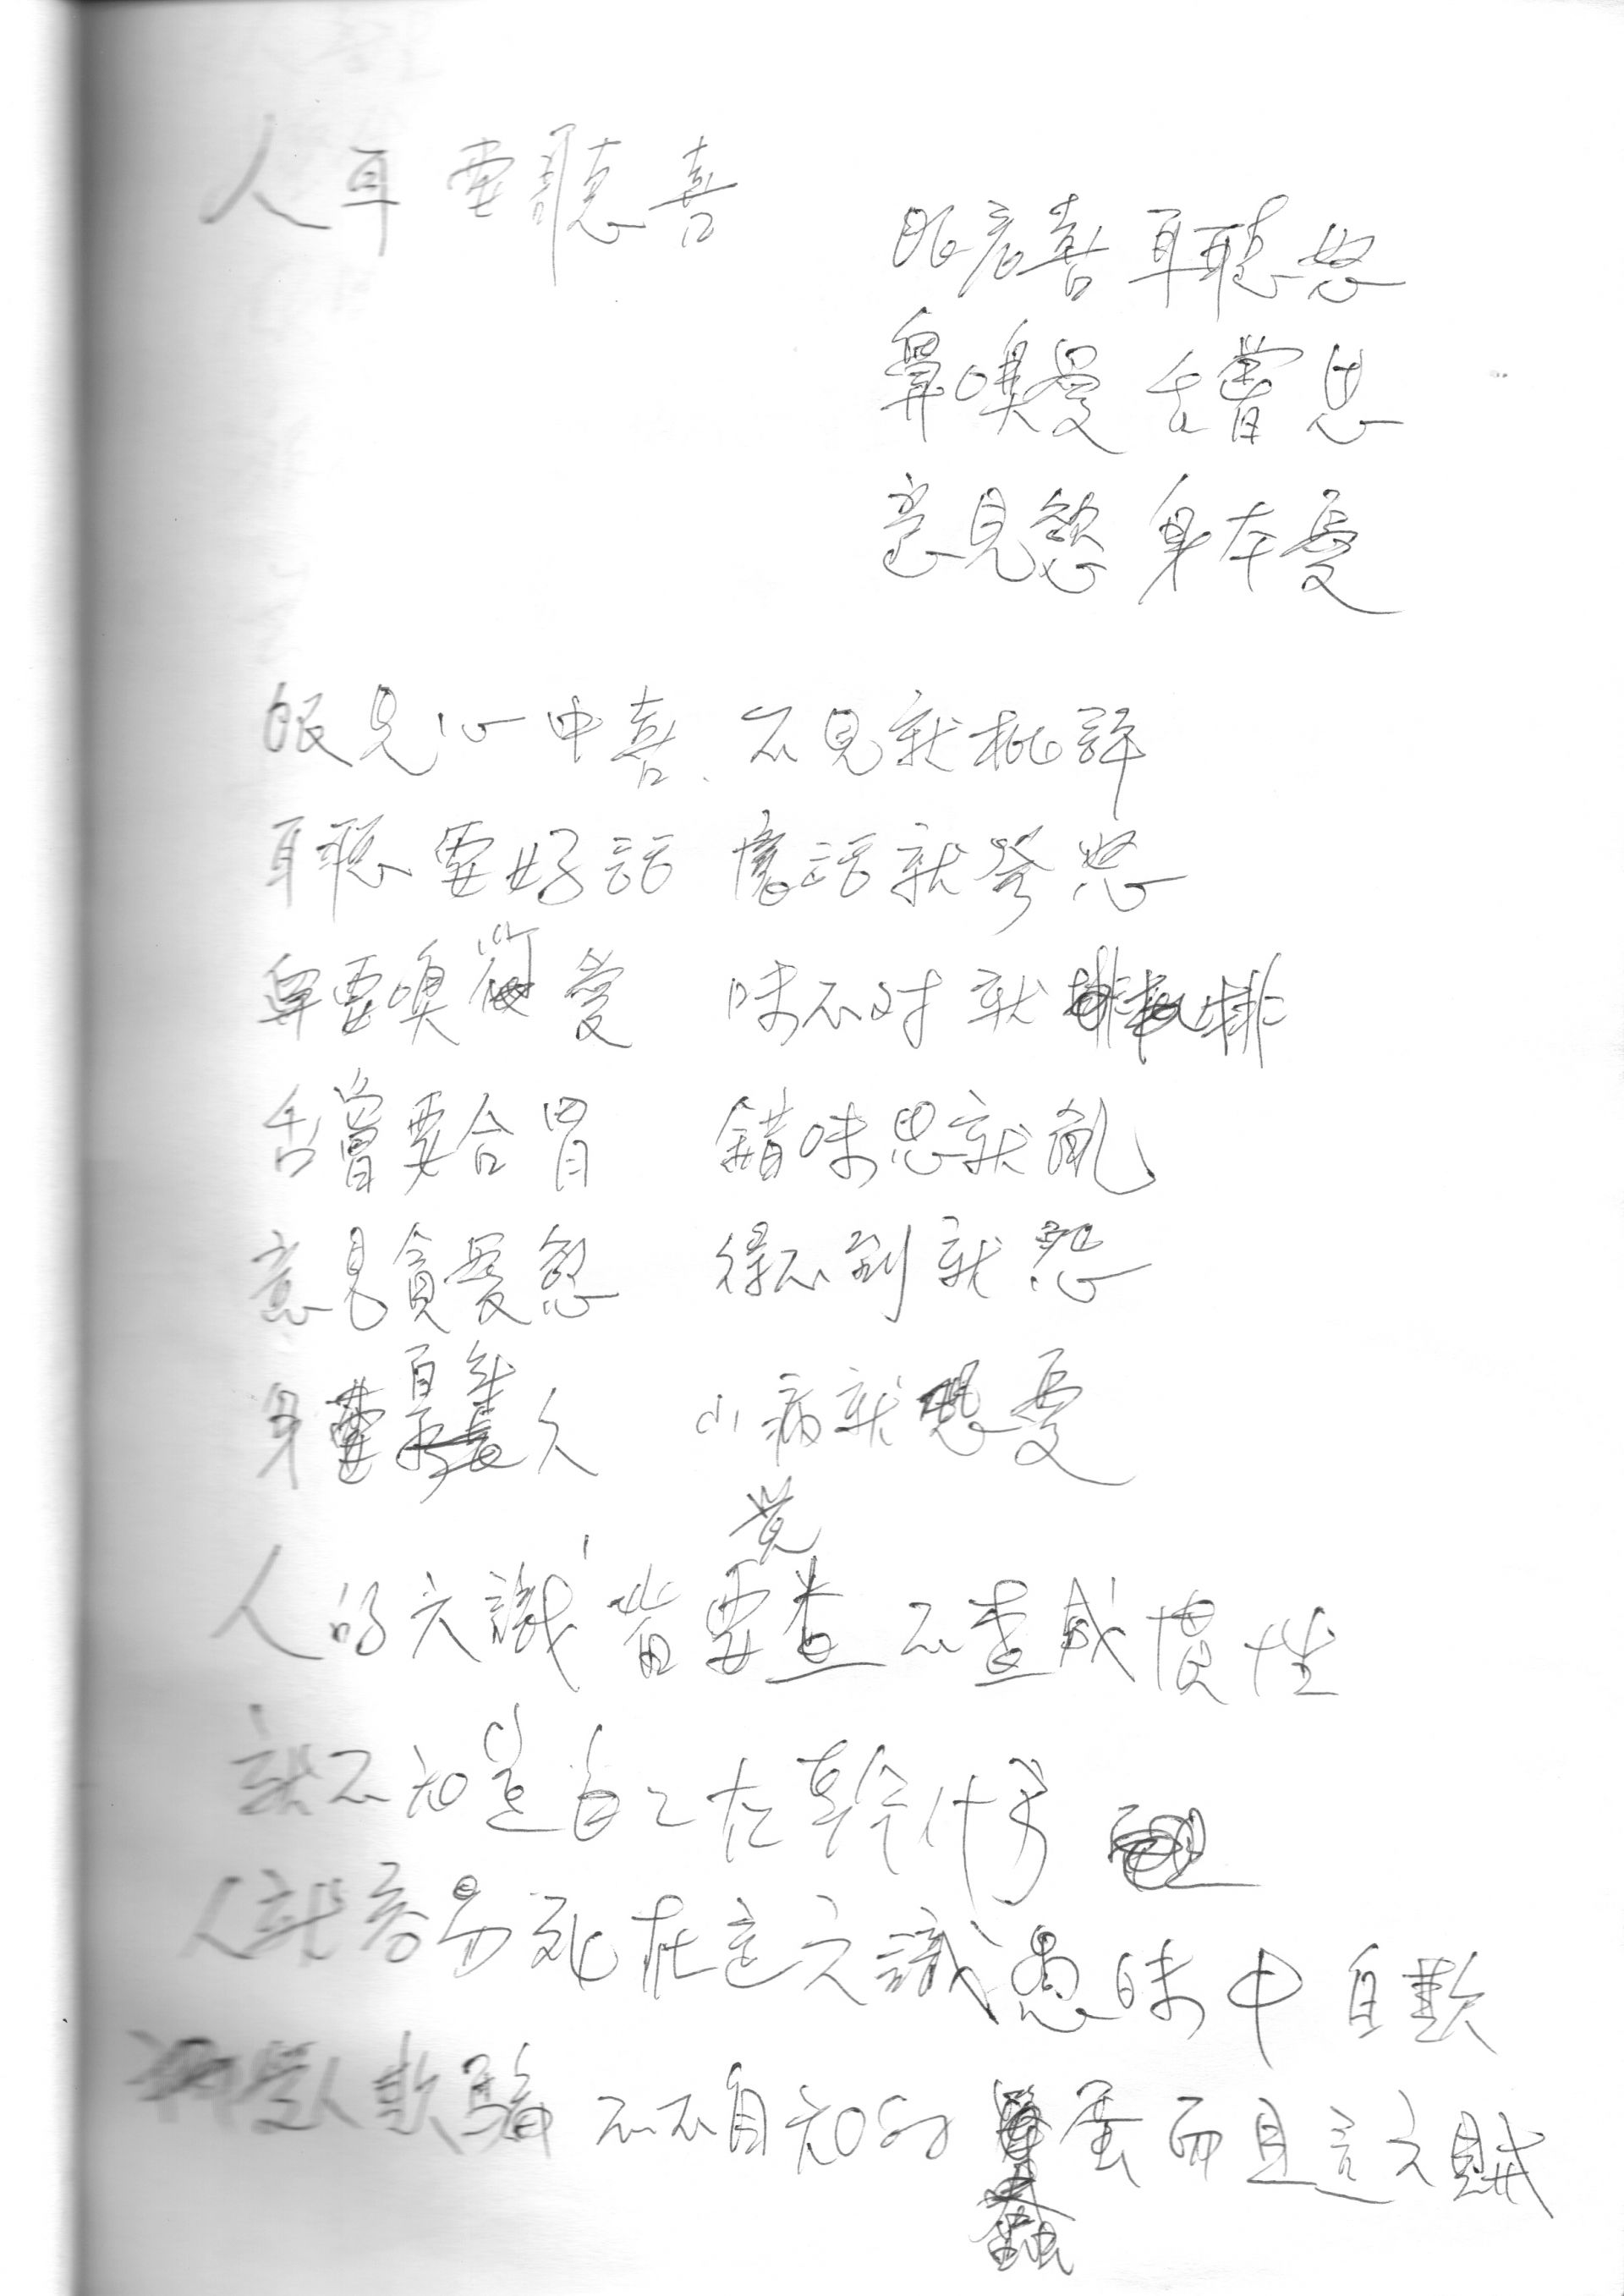 人耳要聽喜
眼看喜 耳聽怒
鼻嗅愛 舌嘗思
意見慾 身本憂
眼見心中喜、不見就批評
耳聽要好話 壞話就發怒
鼻要嗅 愛 味不对就排
舌嘗要合胃 錯味思就亂
意見貪愛慾 得不到就怨
身要百年久 小病就恐憂
人的六識皆要覚查 不查成慣性
就不知道自己在幹什麼
人就容易死在這六識愚昧中 自欺
受人欺騙 而不自知的蠢蛋 而且這六賊